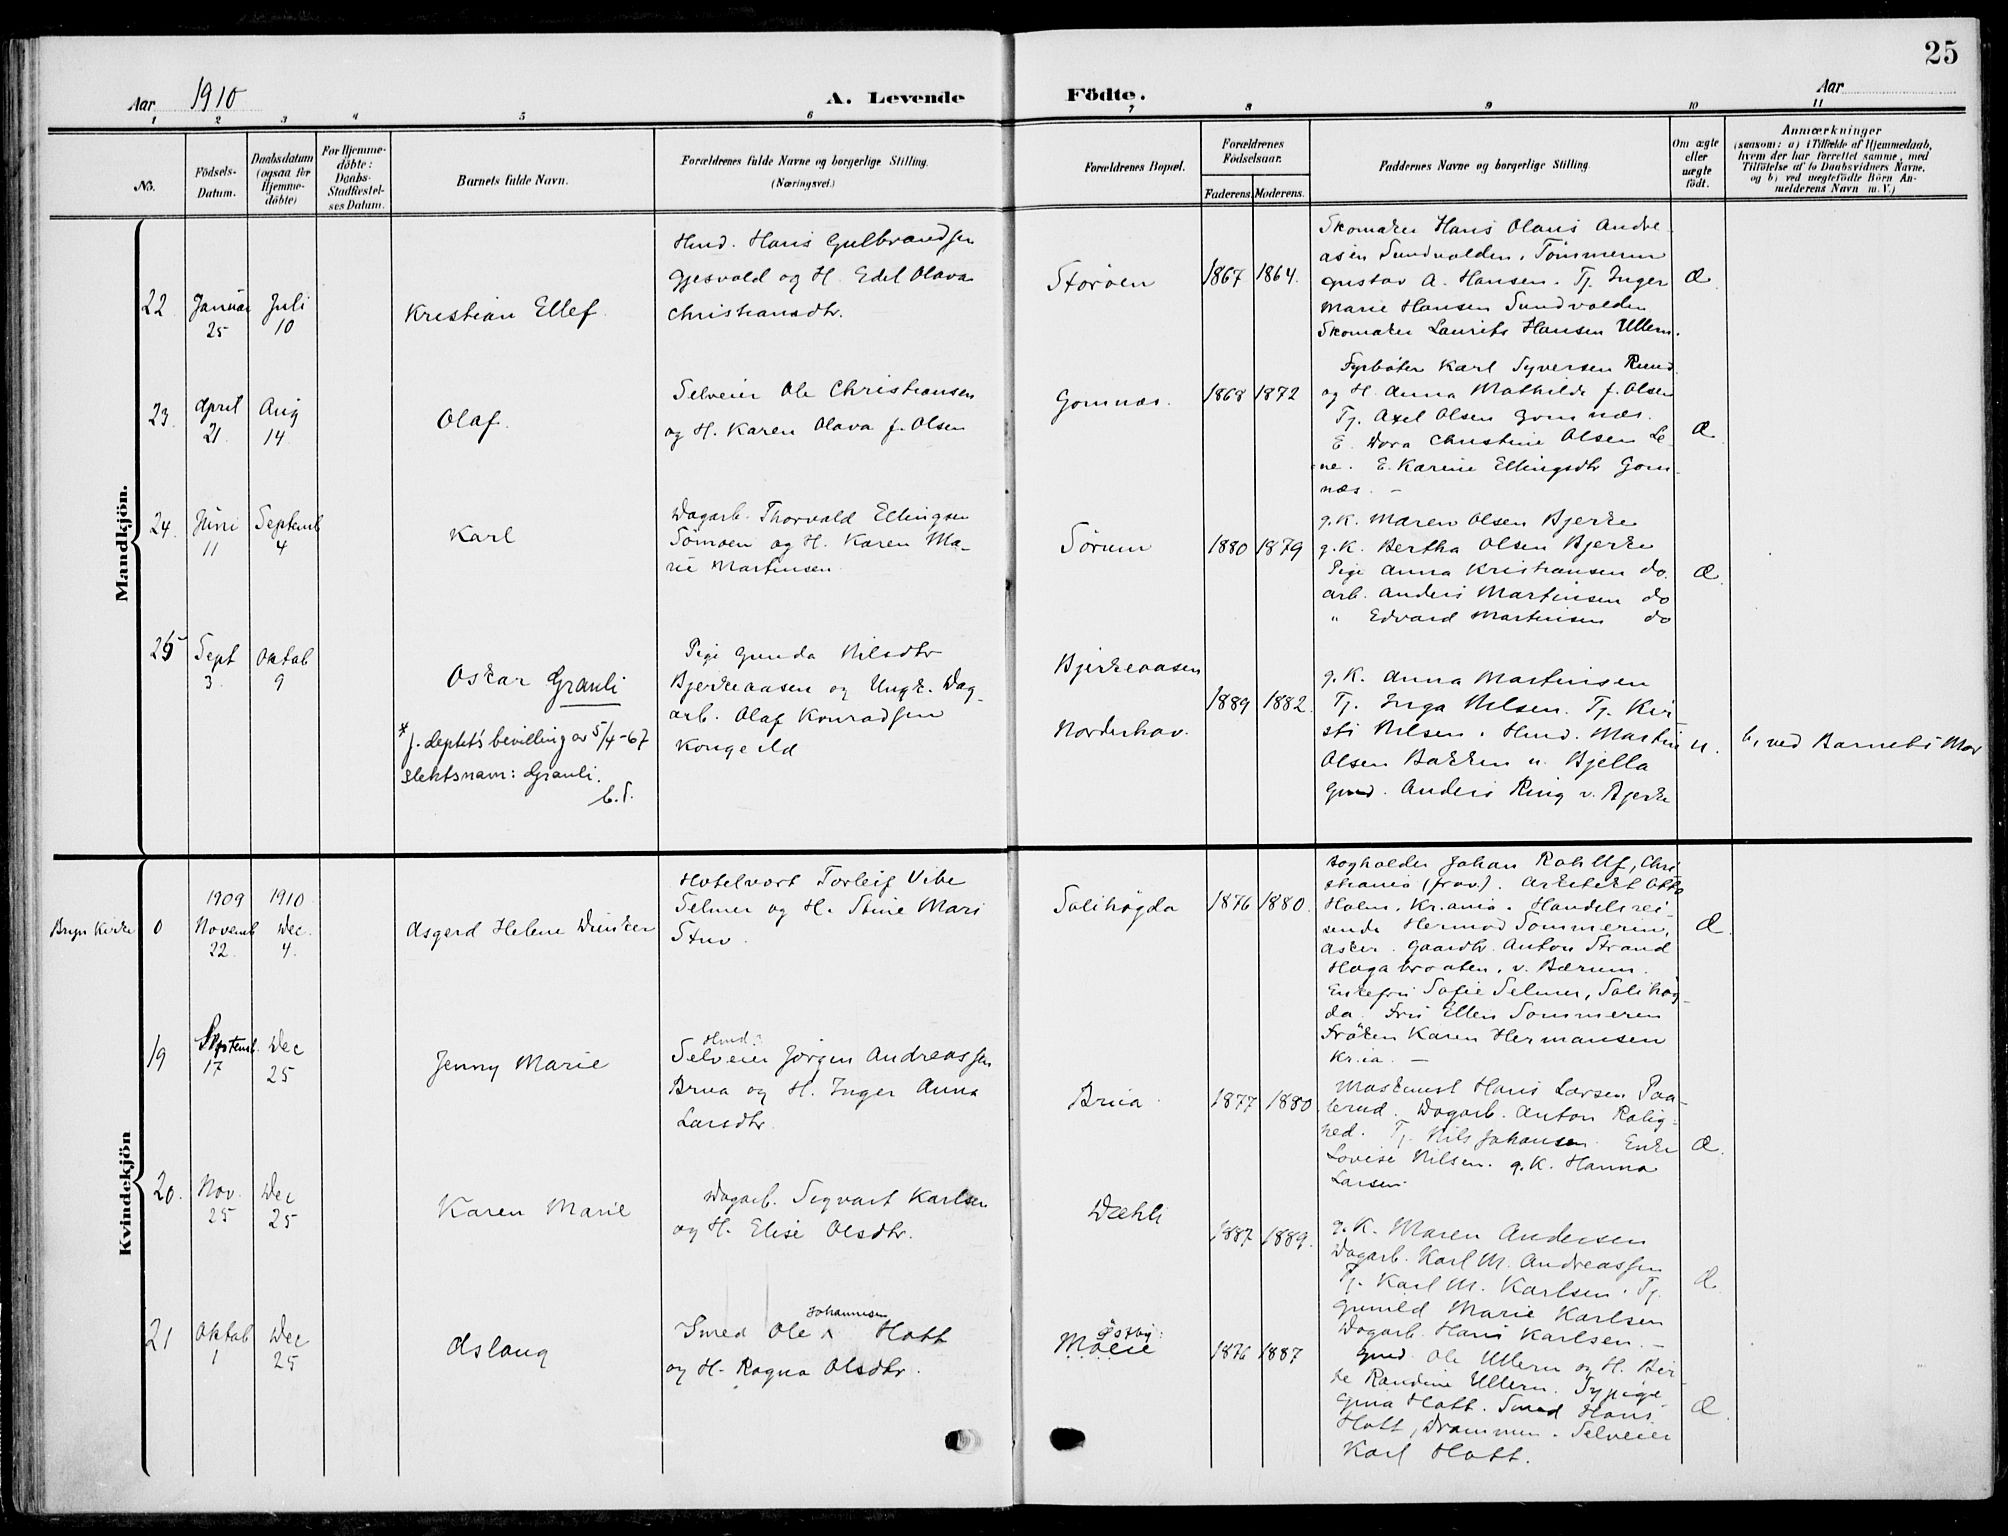 25
Aar 1910
A. Levende Födte.
Aar
1 2 3 4 5 6 7 8 9 10 11
No.
Födsels-Datum.
Daabsdatum (ogsaa for Hjemme-döbte)
For Hjemme-döbte: Daabs-Stadfæstel-ses Datum.
Barnets fulde Navn.
Forældrenes fulde Navne og borgerlige Stilling.
(Næringsvei.)
Forældrenes Bopæl.
Forældrenes Födselsaar.
Faderens. Moderens.
Faddernes Navne og borgerlige Stilling.
Om ægte eller uægte födt.
Anmærkninger
(saasom: a) i Tilfælde af Hjemmedaab,
hvem der har forrettet samme, med
Tilföielse af to Daabsvidners Navne,
og b) ved uægtefödte Börn An-
melderens Navn m. V.)
Mandkjön.
22. Januar 25 Juli 10
Kristian Ellef.
Hmd. Hans Gulbrandsen
Gjesvold og H. Edel Olava
Christiansdtr.
Storöen
1867 1864.
Skomaker Hans Olaus Andre-
asen Sundvolden. Tömmerm
Gustav A. Hansen. Tj. Inger
Marie Hansen Sundvolden
Skomaker Laurits Hansen Ullern.
Æ
23. April 21. Aug 14
Olaf.
Selveier Ole Christiansen
og H. Karen Olava f. Olsen
Gomnæs.
1868 1872
Fyrböter Karl Syversen Rund
og H. Anna Mathilde f. Olsen
Tj. Axel Olsen Gomnæs.
E. Dora Christine Olsen Le-
ne. E. Karine Ellingsdtr Gom-
næs. —
Æ
24. Juni 11 Septemb 4
Karl
Dagarb. Thorvald Ellingsen
Sömoen og H. Karen Ma-
rie Martinsen.
Sörum
1880 1879
g. K. Maren Olsen Bjerke
g. K. Bertha Olsen Bjerke
Pige Anna Kristiansen do.
arb. Anders Martinsen do
" Edvard Martinsen do
Æ.
25 Sept 3. Oktob 9
Oskar Granli
* f. deptets bevilling av 5/4-67
slektsnavn: Granli.
Pige Gunda Nilsdtr
Bjerkeaasen og Ungk. Dag-
arb. Olaf Konradsen
Kongeld
Bjerkeaasen
Norderhov.
1889 1882.
g. K. Anna Martinsen
Tj. Inga Nilsen. Tj. Kir-
sti Nilsen. Hmd. Martin
Olsen Bakken u. Bjella
Gmd. Anders Ring v. Bjerke
u.
b, ved Barnets Mor
Kvindekjön
Bryn Kirke 0 1909 Novemb 22. 1910 Dec. 4.
Asgerd Helene Dunker
Hotelvært Torleif Vibe
Selmer og H. Stine Mari
Stuv.
Solihögda
1876 1880.
Bogholder Johan Rohllf, Chri-
stiania (frav.). Arkitekt Otto
Holm, Kr.ania. Handelsrei-
sende Hermod Sommerin,
Asker. Gaardbr. Anton Strand
Hagabraaten, v. Bærum.
Enkefru Sofie Selmer, Solihög-
da. Fru Ellen Sommeren
Fröken Karen Hermansen
Kr.ia. —
Æ.
19 Septemb. 17 Dec 25
Jenny Marie
Hmd.
Selveier Jörgen Andreassen
Brua og H. Inger Anna
Larsdtr.
Brua
1877 1880.
Maskinist Hans Larsen Paa-
lerud. Dagarb. Anton Rolig-
hed. Tj. Nils Johansen. Enke
Lovise Nilsen. g. K. Hanna
Larsen.
Æ.
20. Nov. 25 Dec 25
Karen Marie
Dagarb. Sigvart Karlsen
og H. Elise Olsdtr.
Dæhli
1887 1889.
g. K. Maren Andersen
Dagarb. Karl M. Andreassen
Tj. Karl M. Karlsen. Tj.
Gunild Marie Karlsen
Dagarb. Hans Karlsen. —
Æ
21 Oktob 1 Dec 25
Aslaug
Johannisen
Smed Ole ^ Hott
og H. Ragna Olsdtr.
Östby:
1876 1887
Gmd. Ole Ullern og H. Bir-
te Randine Ullern. Sypige
Gina Hott. Smed Hans
Hott, Drammen. Selveier
Karl Hott.
Æ.